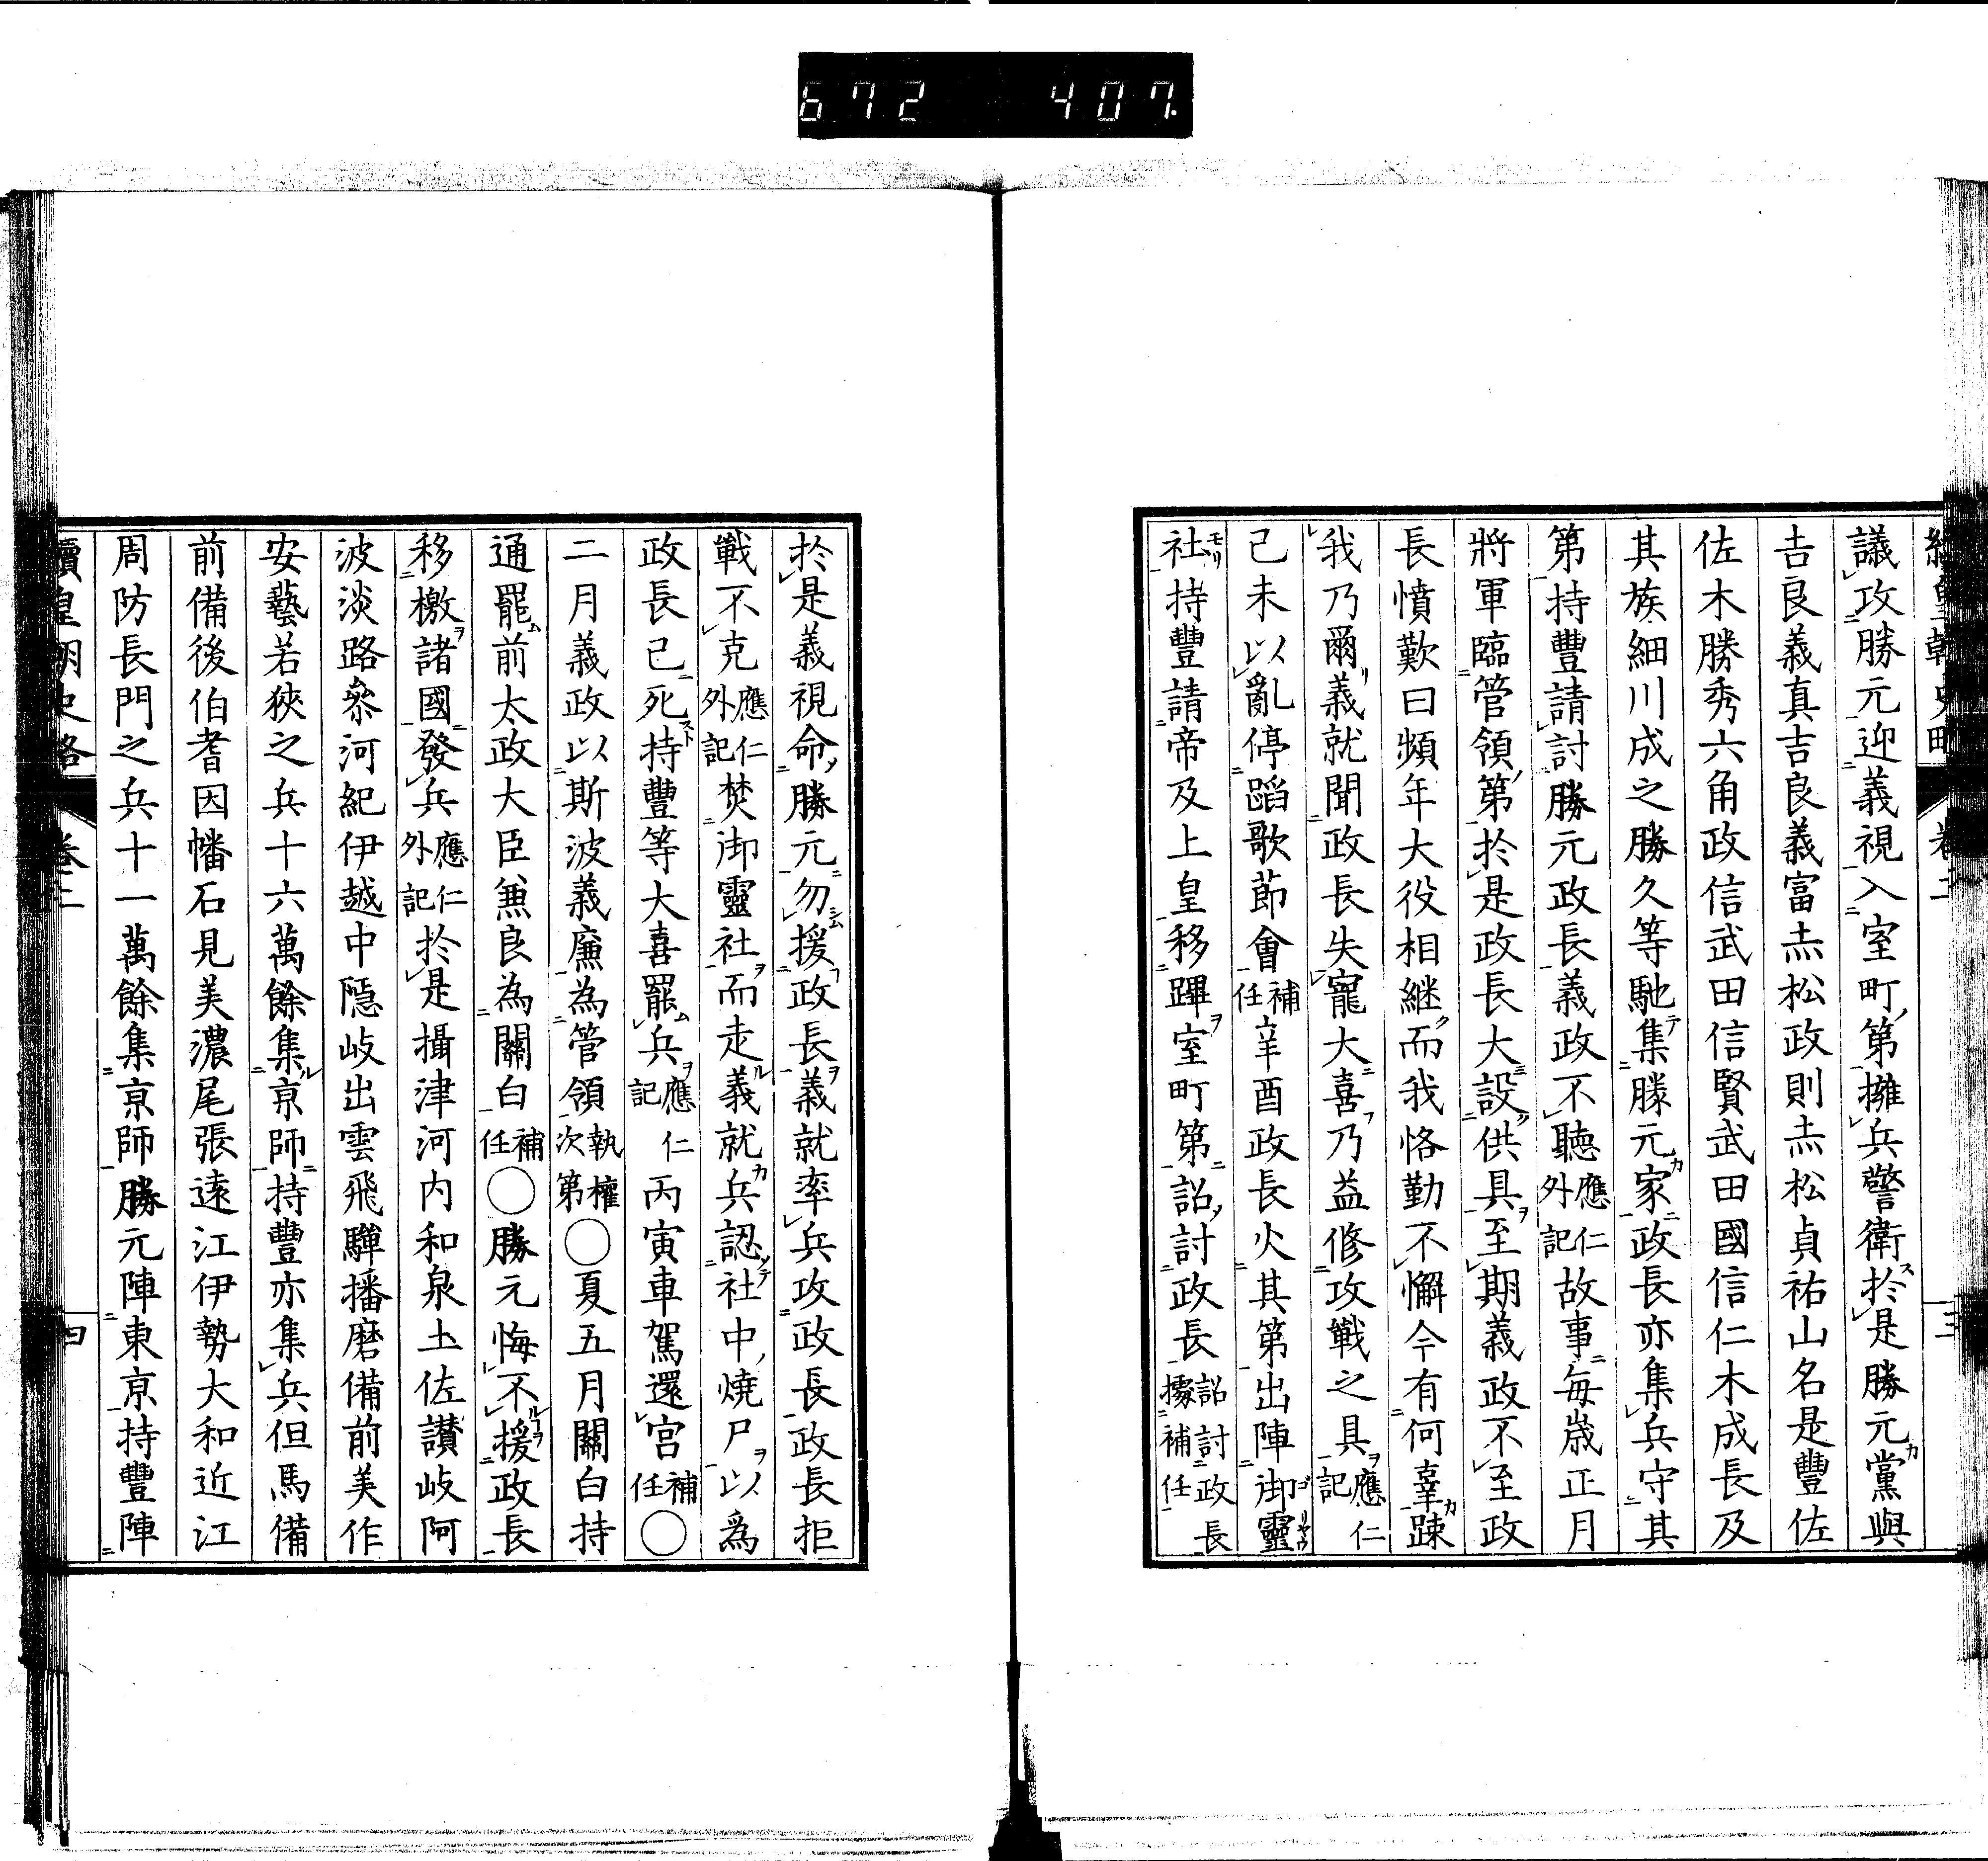 672 407
議攻勝元迎義視入室町第擁兵警衛於是勝元黨與
吉良義真吉良義富赤松政則赤松貞祐山名是豐佐
佐木勝秀六角政信武田信賢武田國信仁木成長及
其族細川成之勝久等馳集勝元家政長亦集兵守其
第持豐請討勝元政長義政不聽應仁外記故事每歲正月
將軍臨管領第於是政長大設供具至期義政不至政
長憤歎曰頻年大役相繼而我恪勤不懈今有何辜踈
我乃爾義就聞政長失寵大喜乃益修攻戰之具應仁記
己未以亂停蹈歌節會補任辛酉政長火其第出陣御靈
社持豐請帝及上皇移蹕室町第詔討政長詔討政長據補任
於是義視命勝元勿援政長義就率兵攻政長政長拒
戰不克應仁外記焚御靈社而走義就兵認社中燒尸以為
政長已死持豐等大喜罷兵應仁記丙寅車駕還宮補任○
二月義政以斯波義廉為管領執權次第○夏五月關白持
通罷前太政大臣兼良為關白補任○勝元悔不援政長
移檄諸國發兵應仁外記於是攝津河内和泉土佐讃岐阿
波淡路參河紀伊越中隱岐出雲飛驒播磨備前美作
安藝若狹之兵十六萬餘集京師持豐亦集兵但馬備
前備後伯耆因幡石見美濃尾張遠江伊勢大和近江
周防長門之兵十一萬餘集京師勝元陣東京持豐陣
續皇朝史略 卷二 四